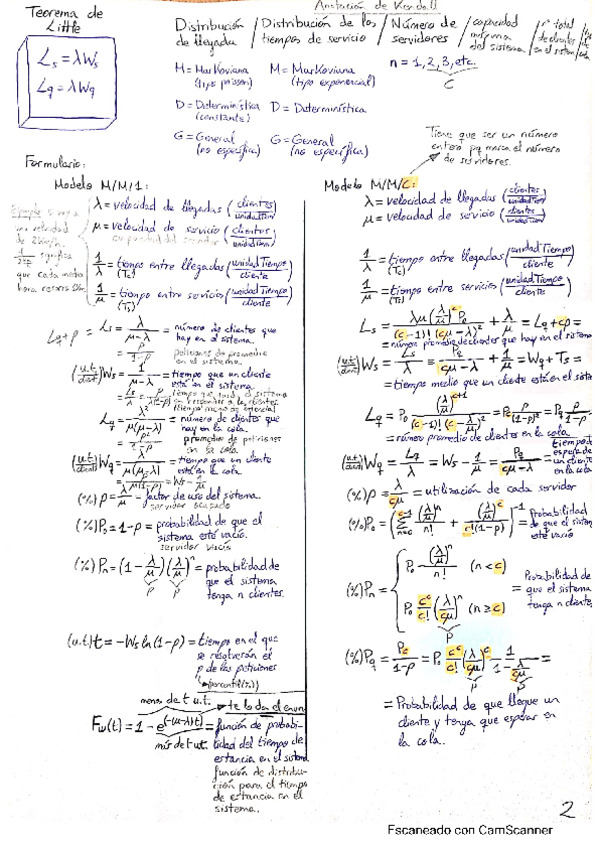 Teorema de
Little
Ls = λWs
Lq = λWq
Anotación de Kendall
Distribución de llegada / Distribución de los tiempos de servicio / Número de servidores / capacidad máxima del sistema / nº total de clientes en el sistema /
M = Markoviana (tipo poisson) M = Markoviana (tipo exponencial) n = 1, 2, 3, etc.
C
D = Determinística (constante) D = Determinística
G = General (no específica) G = General (no específica)
Tiene que ser un número
entero pq marca el número
de servidores.
Formulario:
Modelo M/M/1:
λ = velocidad de llegadas (clientes/unidad tiem)
μ = velocidad de servicio (clientes/unidad tiem)
1/λ (Tc) = tiempo entre llegadas (unidad Tiempo/cliente)
1/μ (Ts) = tiempo entre servicios (unidad Tiempo/cliente)
Lq+ρ = Ls = λ/(μ-λ) = número de clientes que
hay en el sistema
= ρ/(1-ρ) peticiones de promedio
en el sistema
(u.t./client) Ws = 1/(μ-λ) = tiempo que un cliente
está en el sistema
= Ls/λ
Lq = λ²/(μ(μ-λ)) = número de clientes que
hay en la cola.
= ρ²/(1-ρ) promedio de peticiones
en la cola
(u.t./client) Wq = λ/(μ(μ-λ)) = tiempo que un cliente
está en la cola.
= Ws - 1/μ
(%) ρ = λ/μ = factor de uso del sistema.
servidor ocupado
(%) P₀ = 1-ρ = probabilidad de que el
sistema esté vacío.
servidor vacío
(%) Pn = (1 - λ/μ)(λ/μ)ⁿ = probabilidad de
que el sistema
tenga n clientes.
ρ ρ
(u.t.) t = -Ws ln(1-ρ) = tiempo en el que
se resolverán el
ρ de las peticiones
percentil(%)
menos de t u.t. te lo da el enun
Fw(t) = 1 - e^(-(μ-λ)t) = función de probabi-
más de t u.t. lidad del tiempo de
estancia en el sistema
función de distribu-
ción para el tiempo
de estancia en el
sistema.
Modelo M/M/C:
λ = velocidad de llegadas (clientes/unidad tiem)
μ = velocidad de servicio (clientes/unidad tiem)
1/λ (Tc) = tiempo entre llegadas (unidad Tiempo/cliente)
1/μ (Ts) = tiempo entre servicios (unidad Tiempo/cliente)
Ls = λμ(λ/μ)^c P₀/((c-1)!(cμ-λ)²) + λ/μ = Lq + cρ =
= número promedio de clientes que hay en el sistema
(u.t./client) Ws = Ls/λ = Pq/(cμ-λ) + 1/μ = Wq + Ts =
= tiempo medio que un cliente está en el siste
Lq = P₀ (λ/μ)^(c+1)/((c-1)!(c-λ/μ)²) = Pc ρ/(1-ρ)² = Pq ρ/(1-ρ)
= número promedio de clientes en la cola.
(u.t./client) Wq = Lq/λ = Ws - 1/μ = Pq/(cμ-λ) = tiempo de
espera de
un cliente
en la cola
(%) ρ = λ/cμ = utilización de cada servidor
(%) P₀ = (Σ_{n=0}^{c-1} (λ/μ)ⁿ/n! + (λ/μ)^c/(c!(1-ρ)))⁻¹ = Probabilidad
de que el sistema
esté vacío
(%) Pn = { P₀ (λ/μ)ⁿ/n! (n < c)
P₀ c^c/c! (λ/cμ)ⁿ (n ≥ c)
ρ
= Probabilidad de
que el sistema
tenga n clientes
(%) Pq = Pc/(1-ρ) = P₀ c^c/c! (λ/cμ)^c 1/(1-λ/cμ) =
ρ ρ
= Probabilidad de que llegue un
cliente y tenga que esperar en
la cola.
2
Escaneado con CamScanner